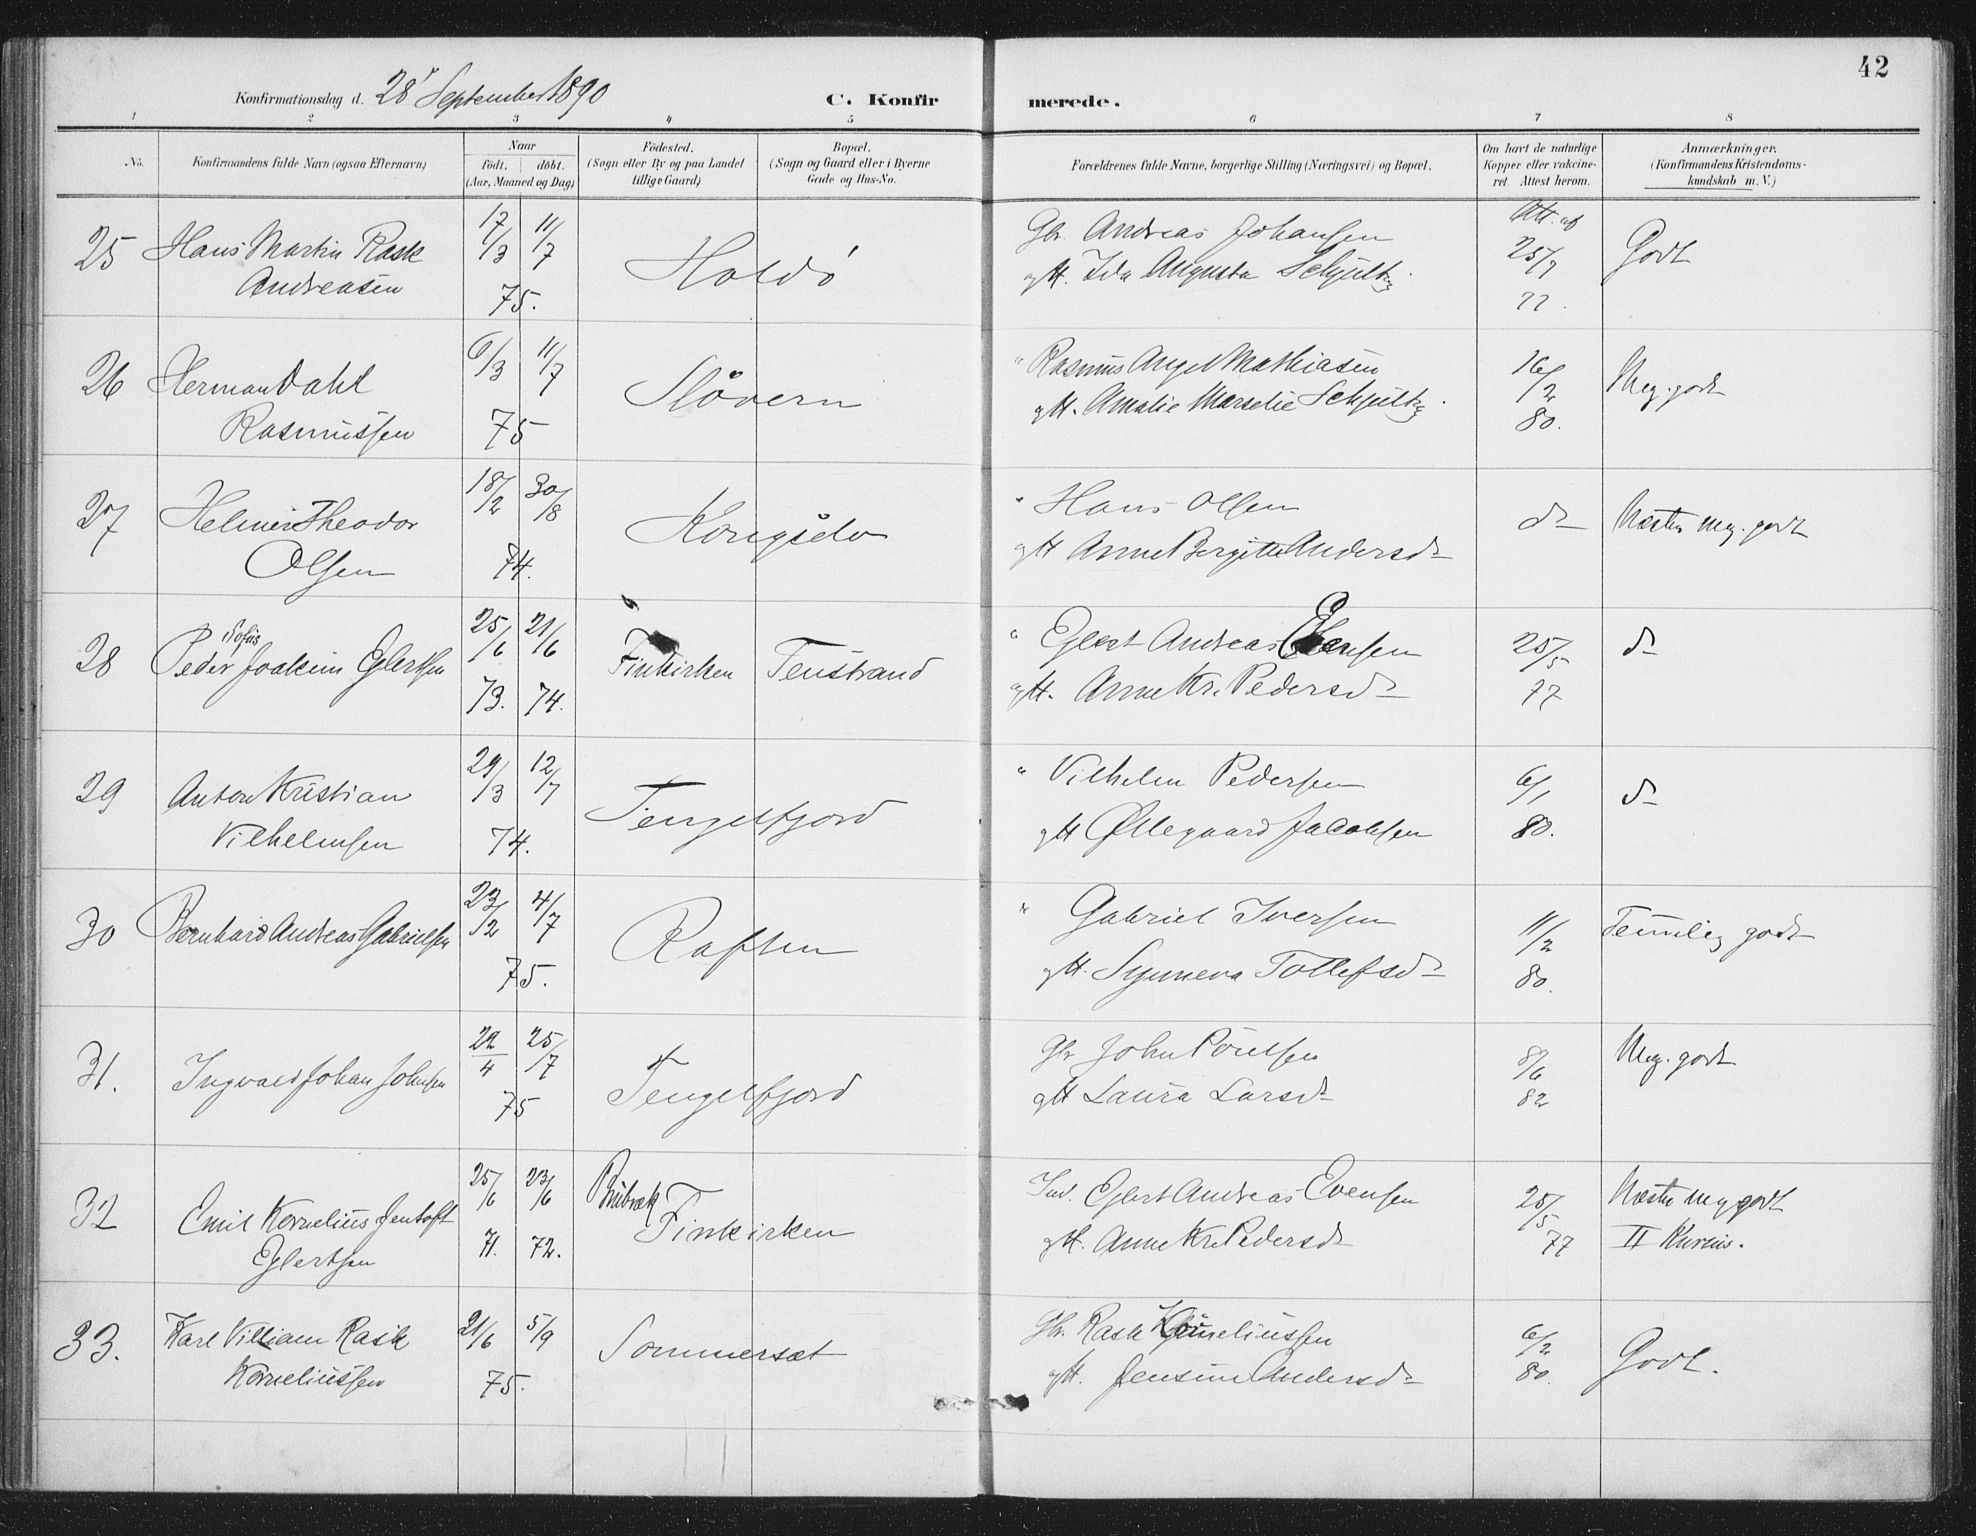 42
Konfirmationsdag d. 28' September 1890 C. Konfirmerede.
1 2 3 4 5 6 7 8
No. Konfirmandens fulde Navn (ogsaa Efternavn) Naar födt. döbt. (Aar, Maaned og Dag) Födested. (Sogn eller By og paa Landet tillige Gaard) Bopæl. (Sogn og Gaard eller i Byerne Gade og Hus-No. Forældrenes fulde Navne, borgerlige Stilling (Næringsvei) og Bopæl. Om havt de naturlige Kopper eller vakcineret Attest herom. Anmærkninger. (Konfirmandens Kristendomskundskab m. V.)
25 Hans Martin Rask 17/3 11/7 Holdö Gbr. Andreas Johansen Att. af 25/9 Godt
Andreasen 75. og H. Ida Augusta Schjultz. 77.
26 Herman Dahl 6/3 11/7 Slövern " Rasmus Angel Mathiasen 16/2 Meg. godt
Rasmussen 75 og H. Amalie Marselie Schjultz. 80.
27 Helmer Theodor 18/2 30/8 Kongselv " Hans Olsen do Næsten meg. godt
Olsen 74. og H Anne Bergitte Andersdr
28 Peder Sofus Joakim Eglertsen 25/6 21/6 Finkirken Tenstrand " Eglert Andreas Evensen 25/5 do
73. 74. og H. Anne Kr. Pedersdr 77
29 Anton Kristian 29/3 12/7 Tengelfjord " Vilhelm Pedersen 6/1 do
Vilhelmsen 74. og H Øllegaard Jacobsen 80.
30 Bernhard Andreas Gabrielsen 23/2 4/7 Raften " Gabriel Iversen 11/2 Temmelig godt
75. og H. Synneva Tollefsdr 80.
31. Ingvald Johan Johnsen 22/4 25/7 Tengelfjord Gbr John Poulsen 8/6 Meg. godt
75 og H Laura Larsdr 82
32 Emil Kornelius Jentoft 25/6 23/6 Finkirken Ind. Eglert Andreas Evensen 25/5 Næsten meg godt
Eglertsen 71. 72. og H. Anne Kr. Pedersdr 77 II Kursus.
33. Karl Villiam Rask 21/6 5/9 Sommerset Gbr. Rask Korneliussen 6/2 Godt.
Korneliussen 75. og H. Jensine Andersdr 80.